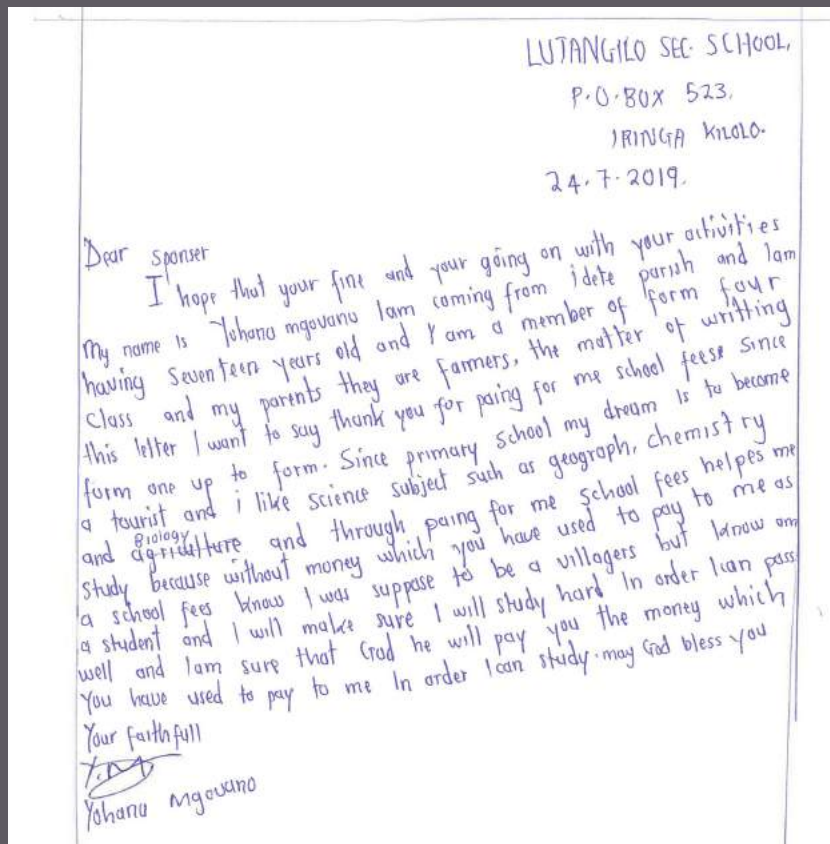 LUTANGILO SEC. SCHOOL,
P.O.BOX 523,
IRINGA KILOLO.
24.7.2019.
Dear sponser
I hope that your fine and your going on with your activities
My name is Yohana mgovano Iam coming from idete parish and Iam
having Seventeen years old and I am a member of form four
Class and my parents they are farmers, the matter of writting
this letter I want to say thank you for paing for me school feese since
form one up to form. Since primary school my dream is to become
a tourist and i like science subject such as geograph, chemistry
and Biology agriculture and through paing for me school fees helpes me
study because without money which you have used to pay to me as
a school fees know I was suppose to be a villagers but know am
a student and I will make sure I will study hard In order Ican pass
well and Iam sure that God he will pay you the money which
You have used to pay to me In order Ican study. may God bless you
Your faithfull
Y.M
Yohana Mgovano